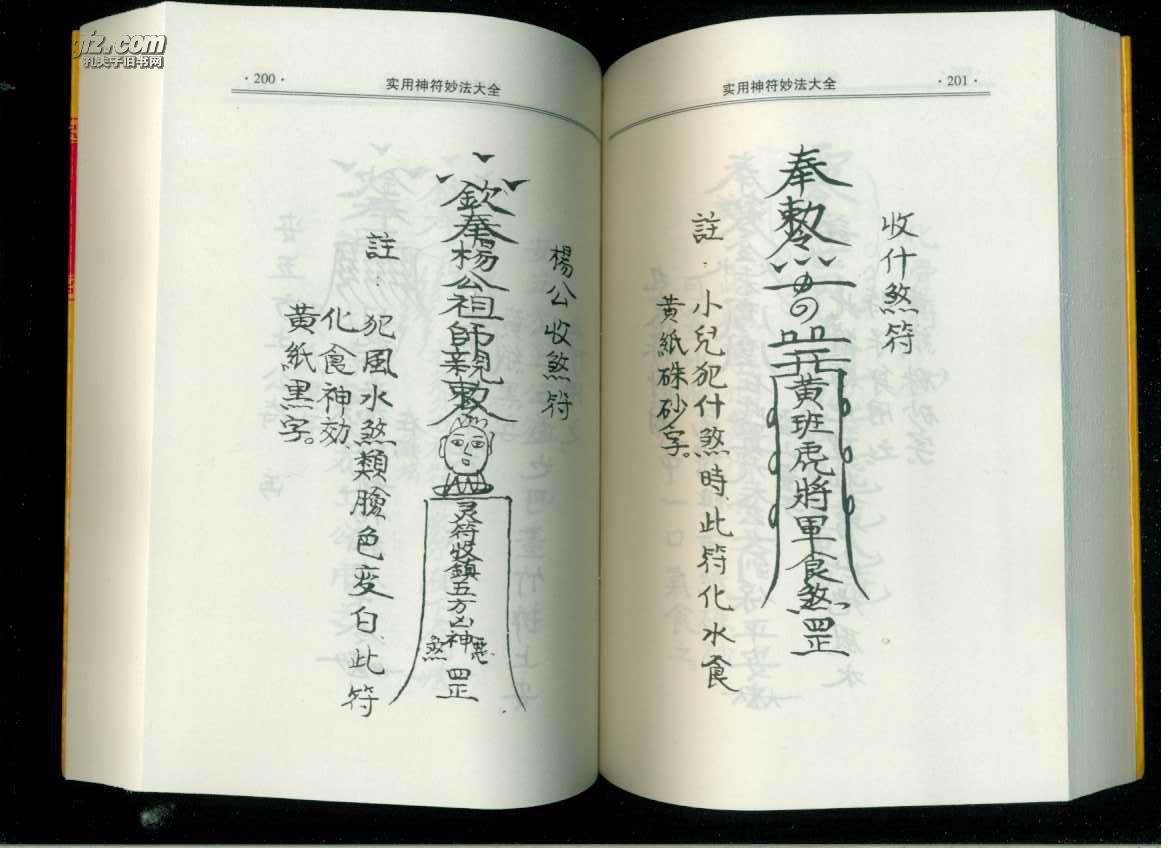 jz.com
孔夫子旧书网
·200·
实用神符妙法大全
楊公收煞符
欽奉楊公祖師親敕令
灵符收鎮五方凶神
惡
煞
罡
註：犯風水煞類臉色变白、此符
化食神効、
黄紙黑字。
实用神符妙法大全
·201·
收什煞符
奉敕令
黄班虎將軍食煞罡
註：小兒犯什煞時、此符化水食
黄紙硃砂字。